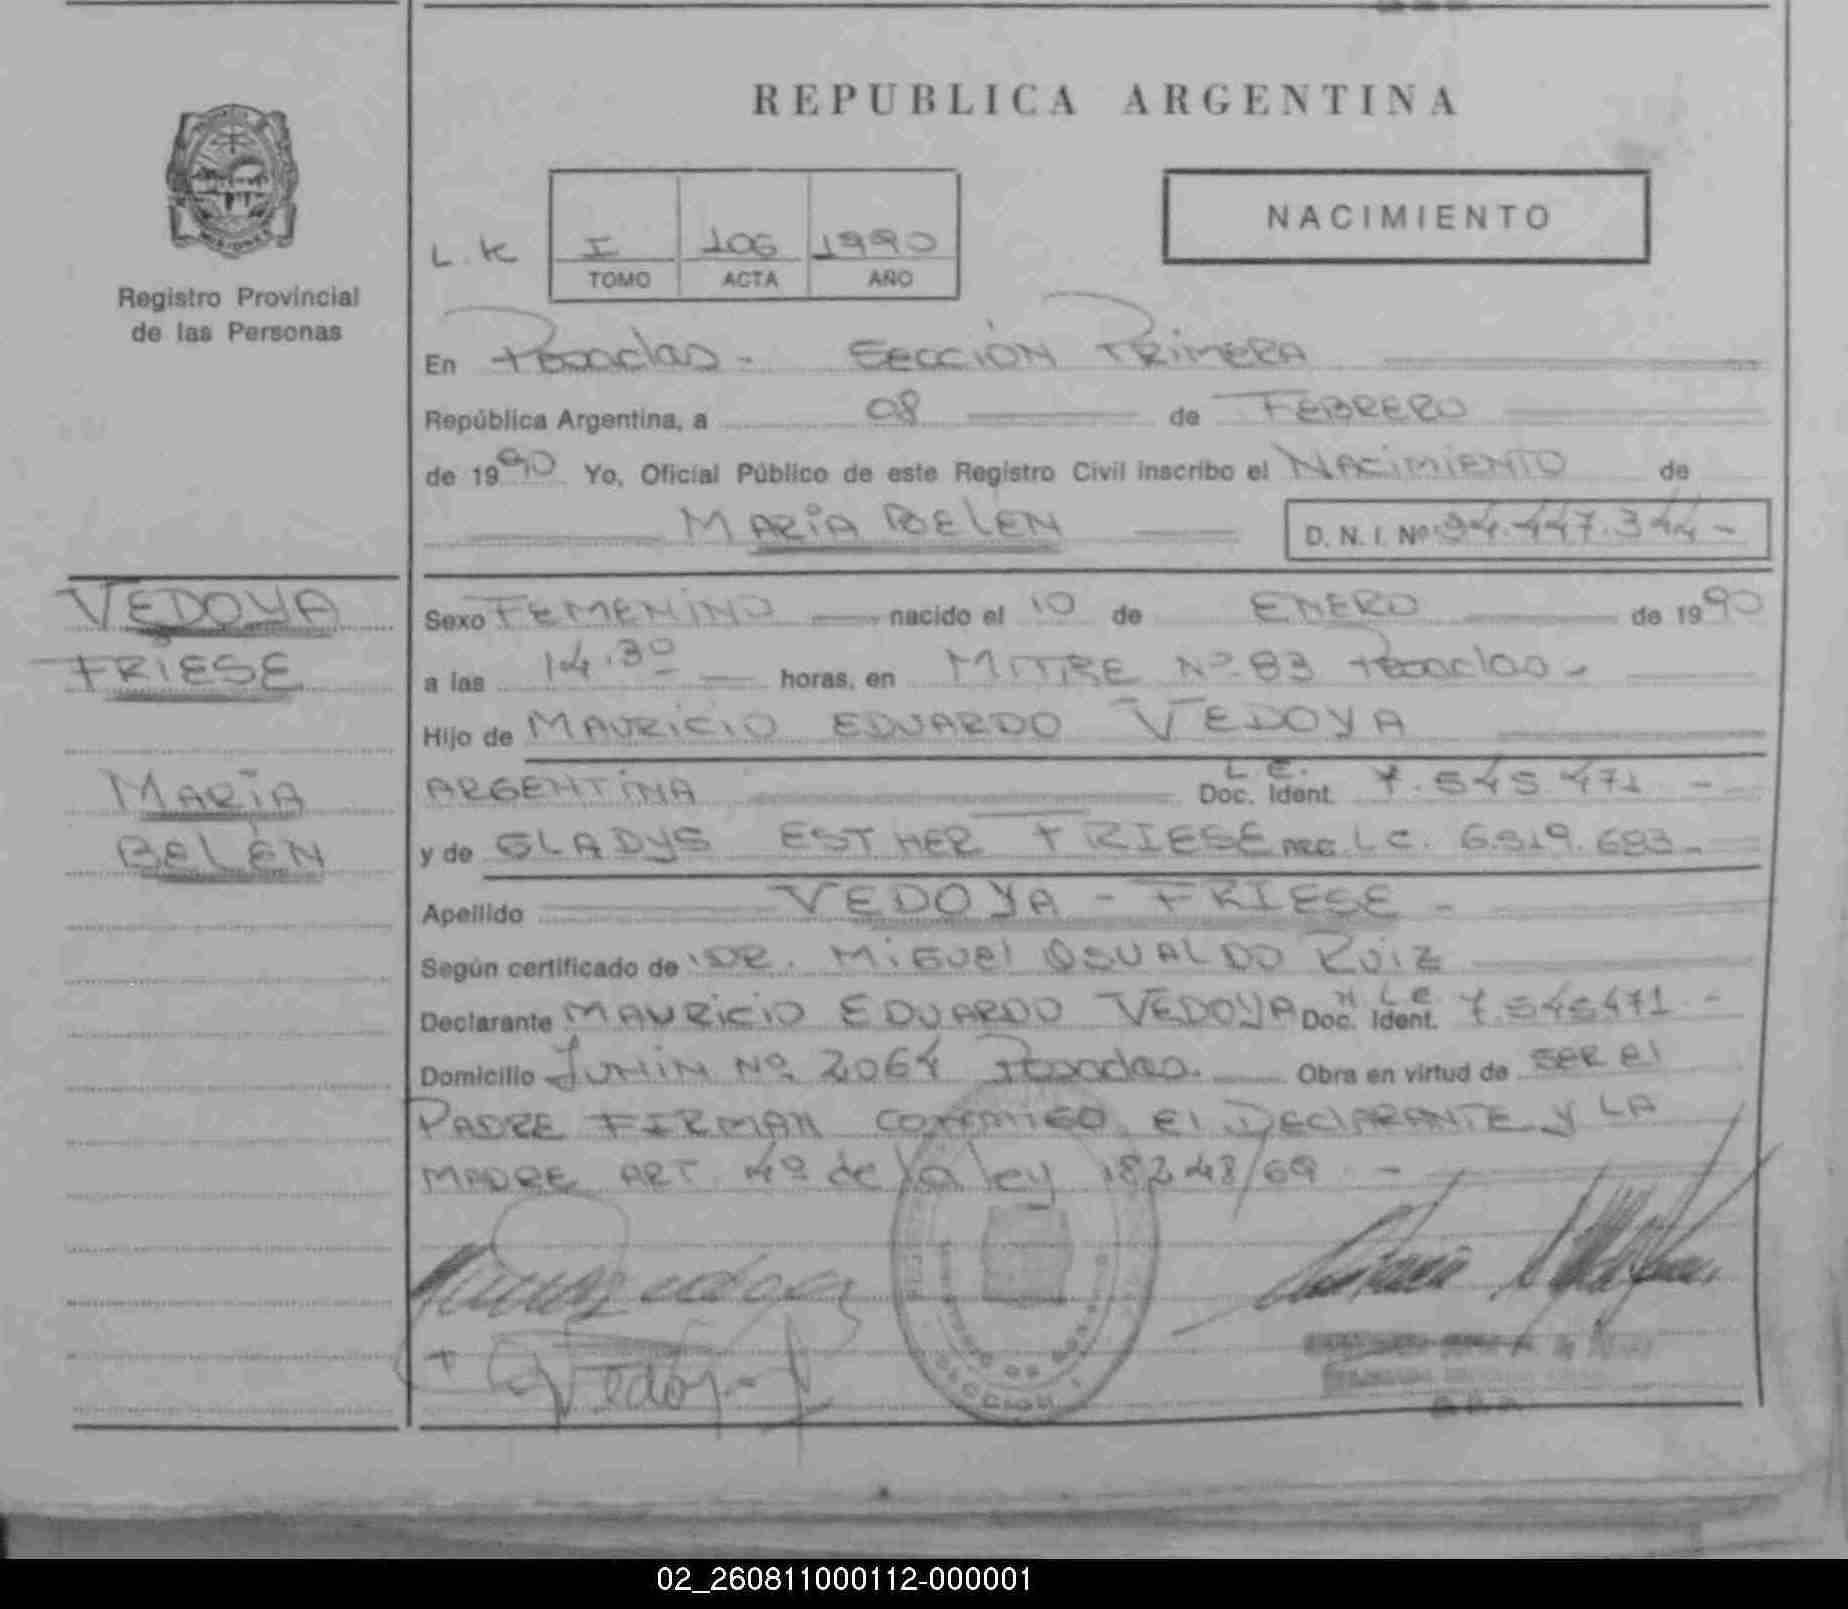 REPUBLICA ARGENTINA
MISIONES
Registro Provincial
de las Personas
NACIMIENTO
L. K
I 106 1990
TOMO ACTA AÑO
En Posadas - SECCIÓN PRIMERA
República Argentina, a 08 de FEBRERO
de 1990 Yo, Oficial Público de este Registro Civil inscribo el NACIMIENTO de
MARIA BELEN D. N. I. Nº 34.447.344 -
VEDOYA
FRIESE
MARIA
BELEN
Sexo FEMENINO nacido el 10 de ENERO de 1990
a las 14.30 horas, en MITRE Nº 83 Posadas -
Hijo de MAURICIO EDUARDO VEDOYA
ARGENTINA L. E. Doc. Ident. 7.545.471 -
y de GLADYS ESTHER FRIESE ARG L C. 6.319.683 -
Apellido VEDOYA - FRIESE -
Según certificado de DR. MIGUEl OSUALDO RUIZ
Declarante MAURICIO EDUARDO VEDOYA Doc. Ident. L E. 7.545.471 -
Domicilio JUNIN Nº 2064 Posadas. Obra en virtud de SER El
PADRE FIRMAN CONMIGO El DECLARANTE y LA
MADRE ART. 4º de la ley 18248/69 -
Vedoya
SECCION 1
02_260811000112-000001